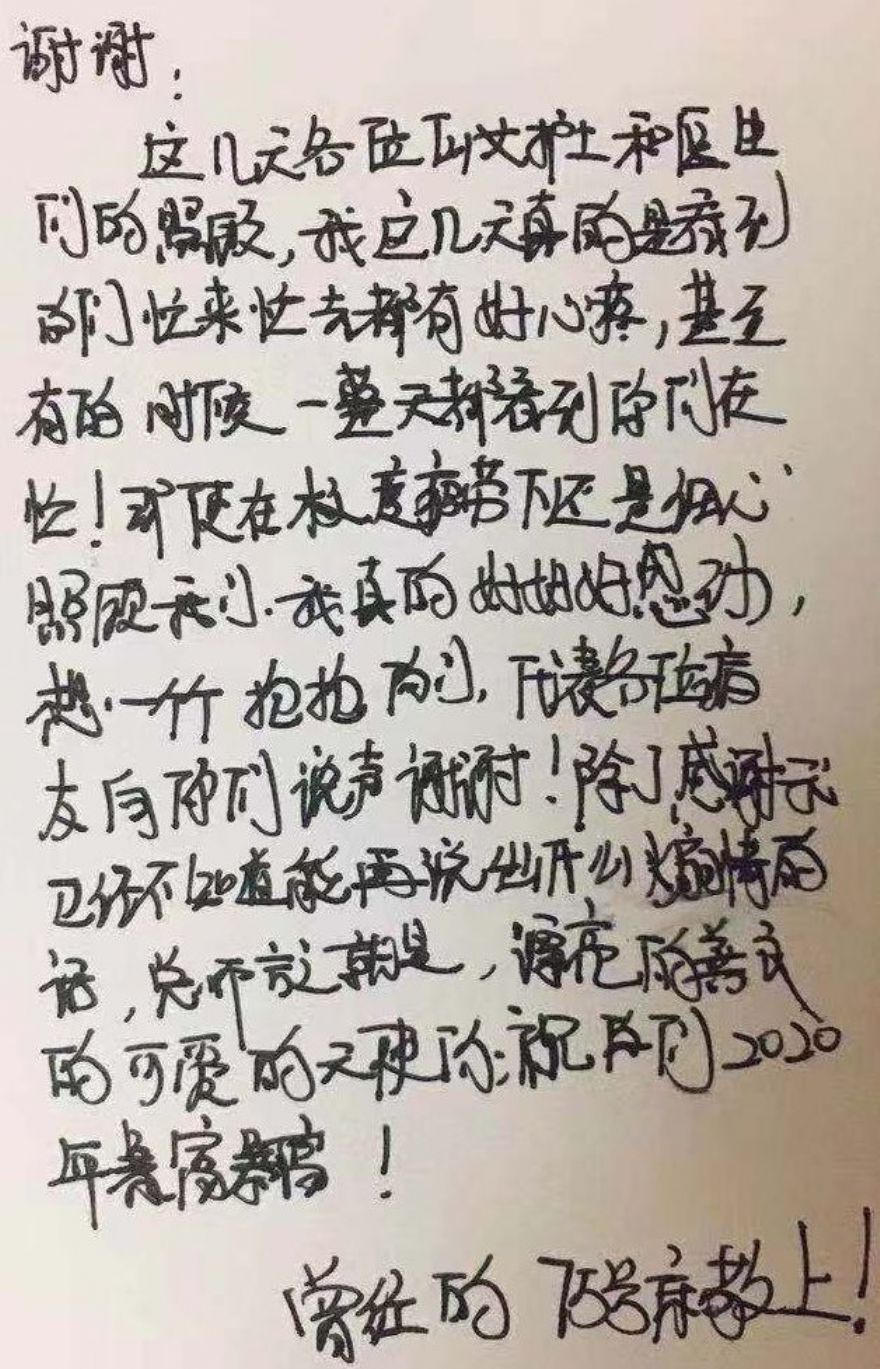 谢谢:
这几天各位 护士和医生
们的照顾,我这几天真的是看到
你们忙来忙去都有好心疼,甚至
有的时候一整天都看到你们在
忙!即使在极度疲劳下还是细心
照顾我们.我真的好好好感动,
想一个个抱抱你们,代表各位病
友向你们说声谢谢!除了感谢
已经不知道能再说出什么煽情的
话,总而言之就是,漂亮的善良
的可爱的天使们:祝你们2020
年暴富暴富!
曾经的75号床敬上!